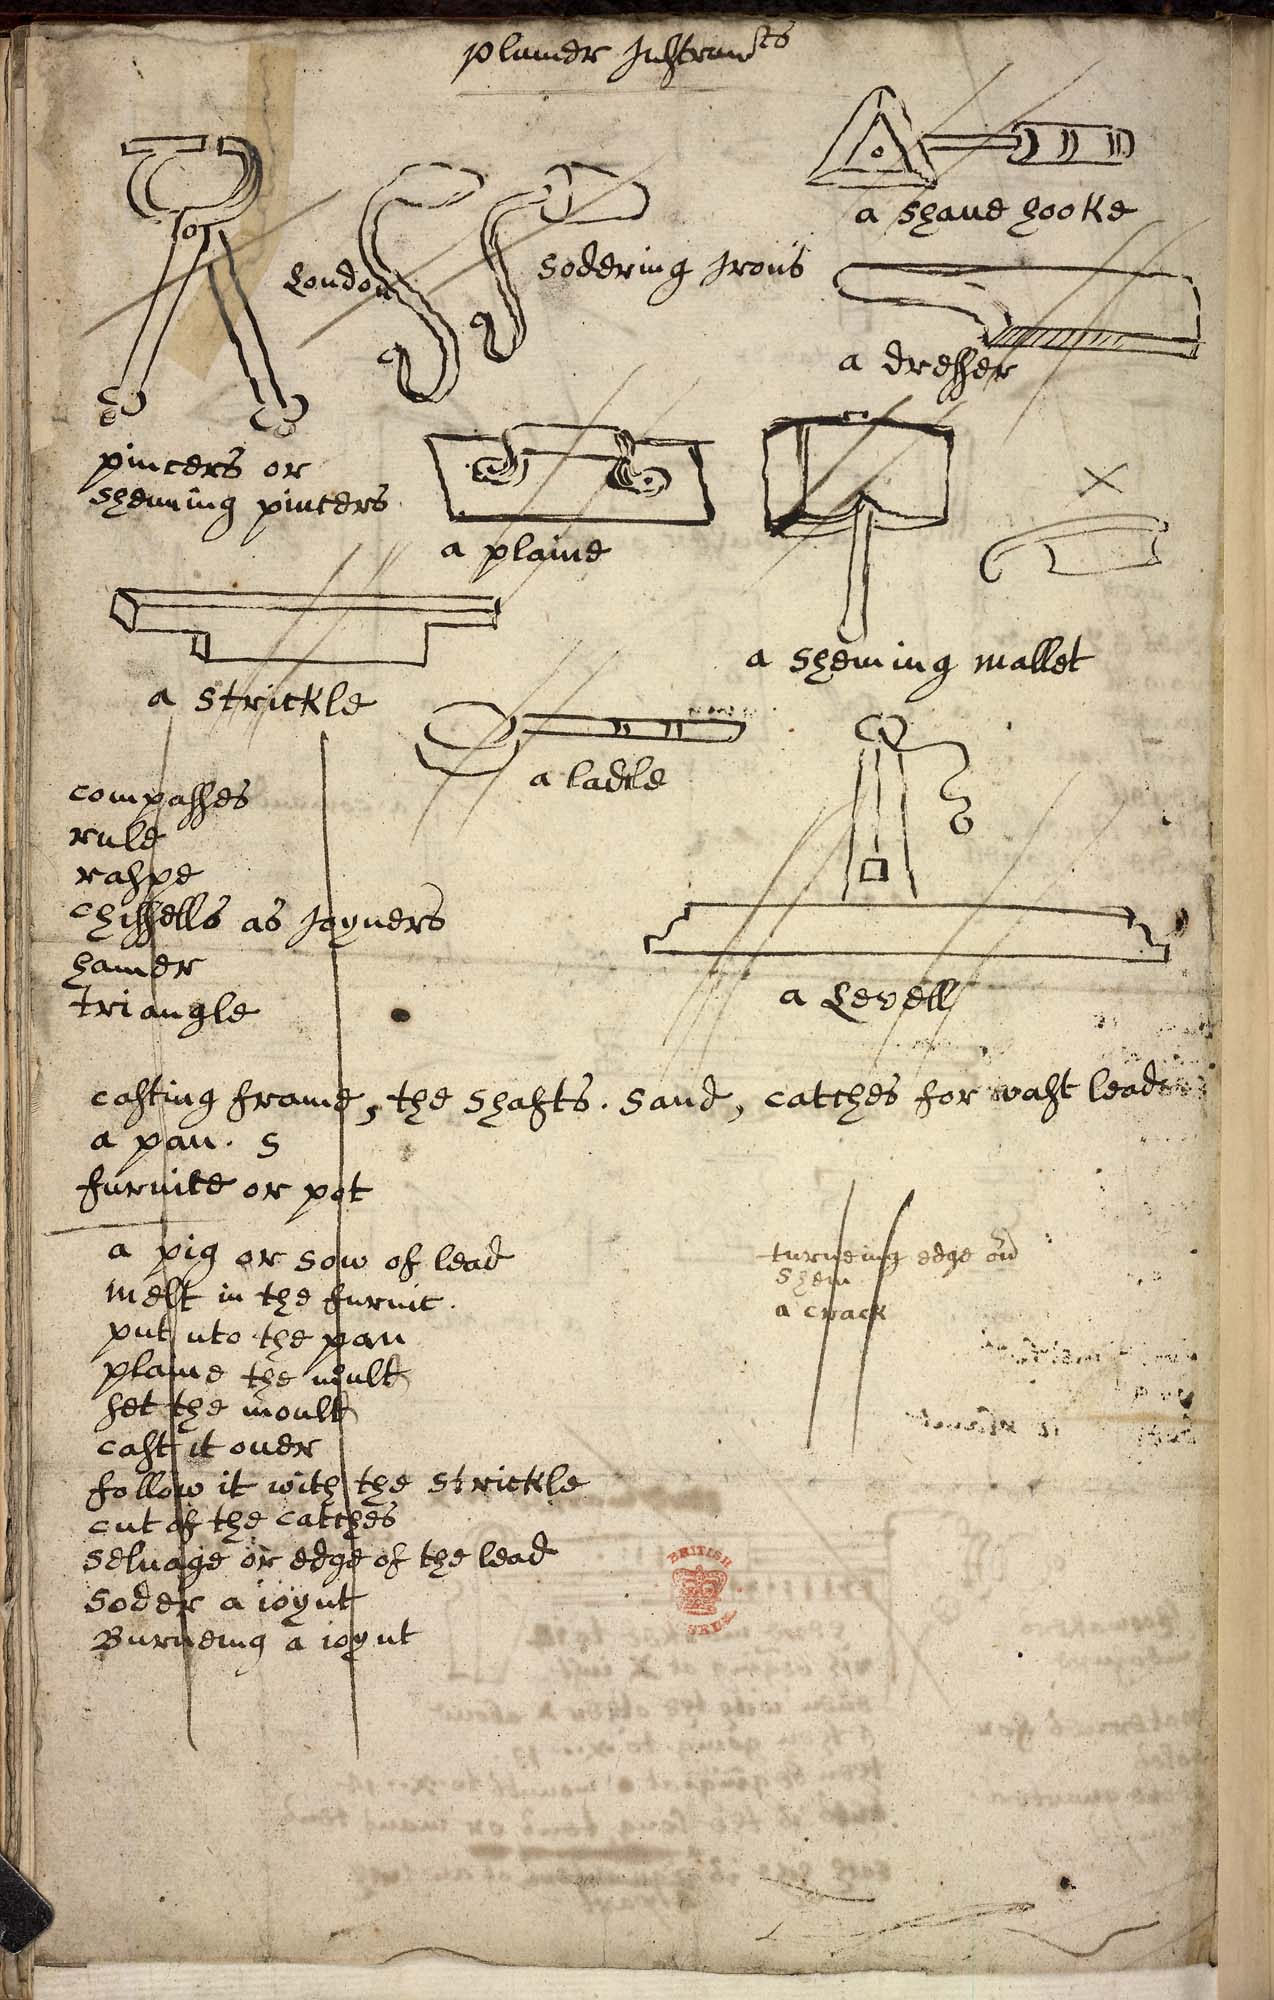 plumer Instrumts
a shaue hooke
London
sodering Irons
a dresser
pincers or
sheming pincers
a plaine
a sheming mallet
a strickle
a ladle
compasses
rule
raspe
chissells as Joyners
hamer
triangle
a Levell
casting frame, the shafts. sand, catches for wast lead
a pan. S
furnice or pot
a pig or sow of lead
melt in the furnic.
put into the pan
plaine the moult
set the moult
cast it ouer
follow it with the strickle
cut of the catches
seluage or edge of the lead
soder a ioynt
Burneing a ioynt
turneing edge
shem
a crack
BRITISH